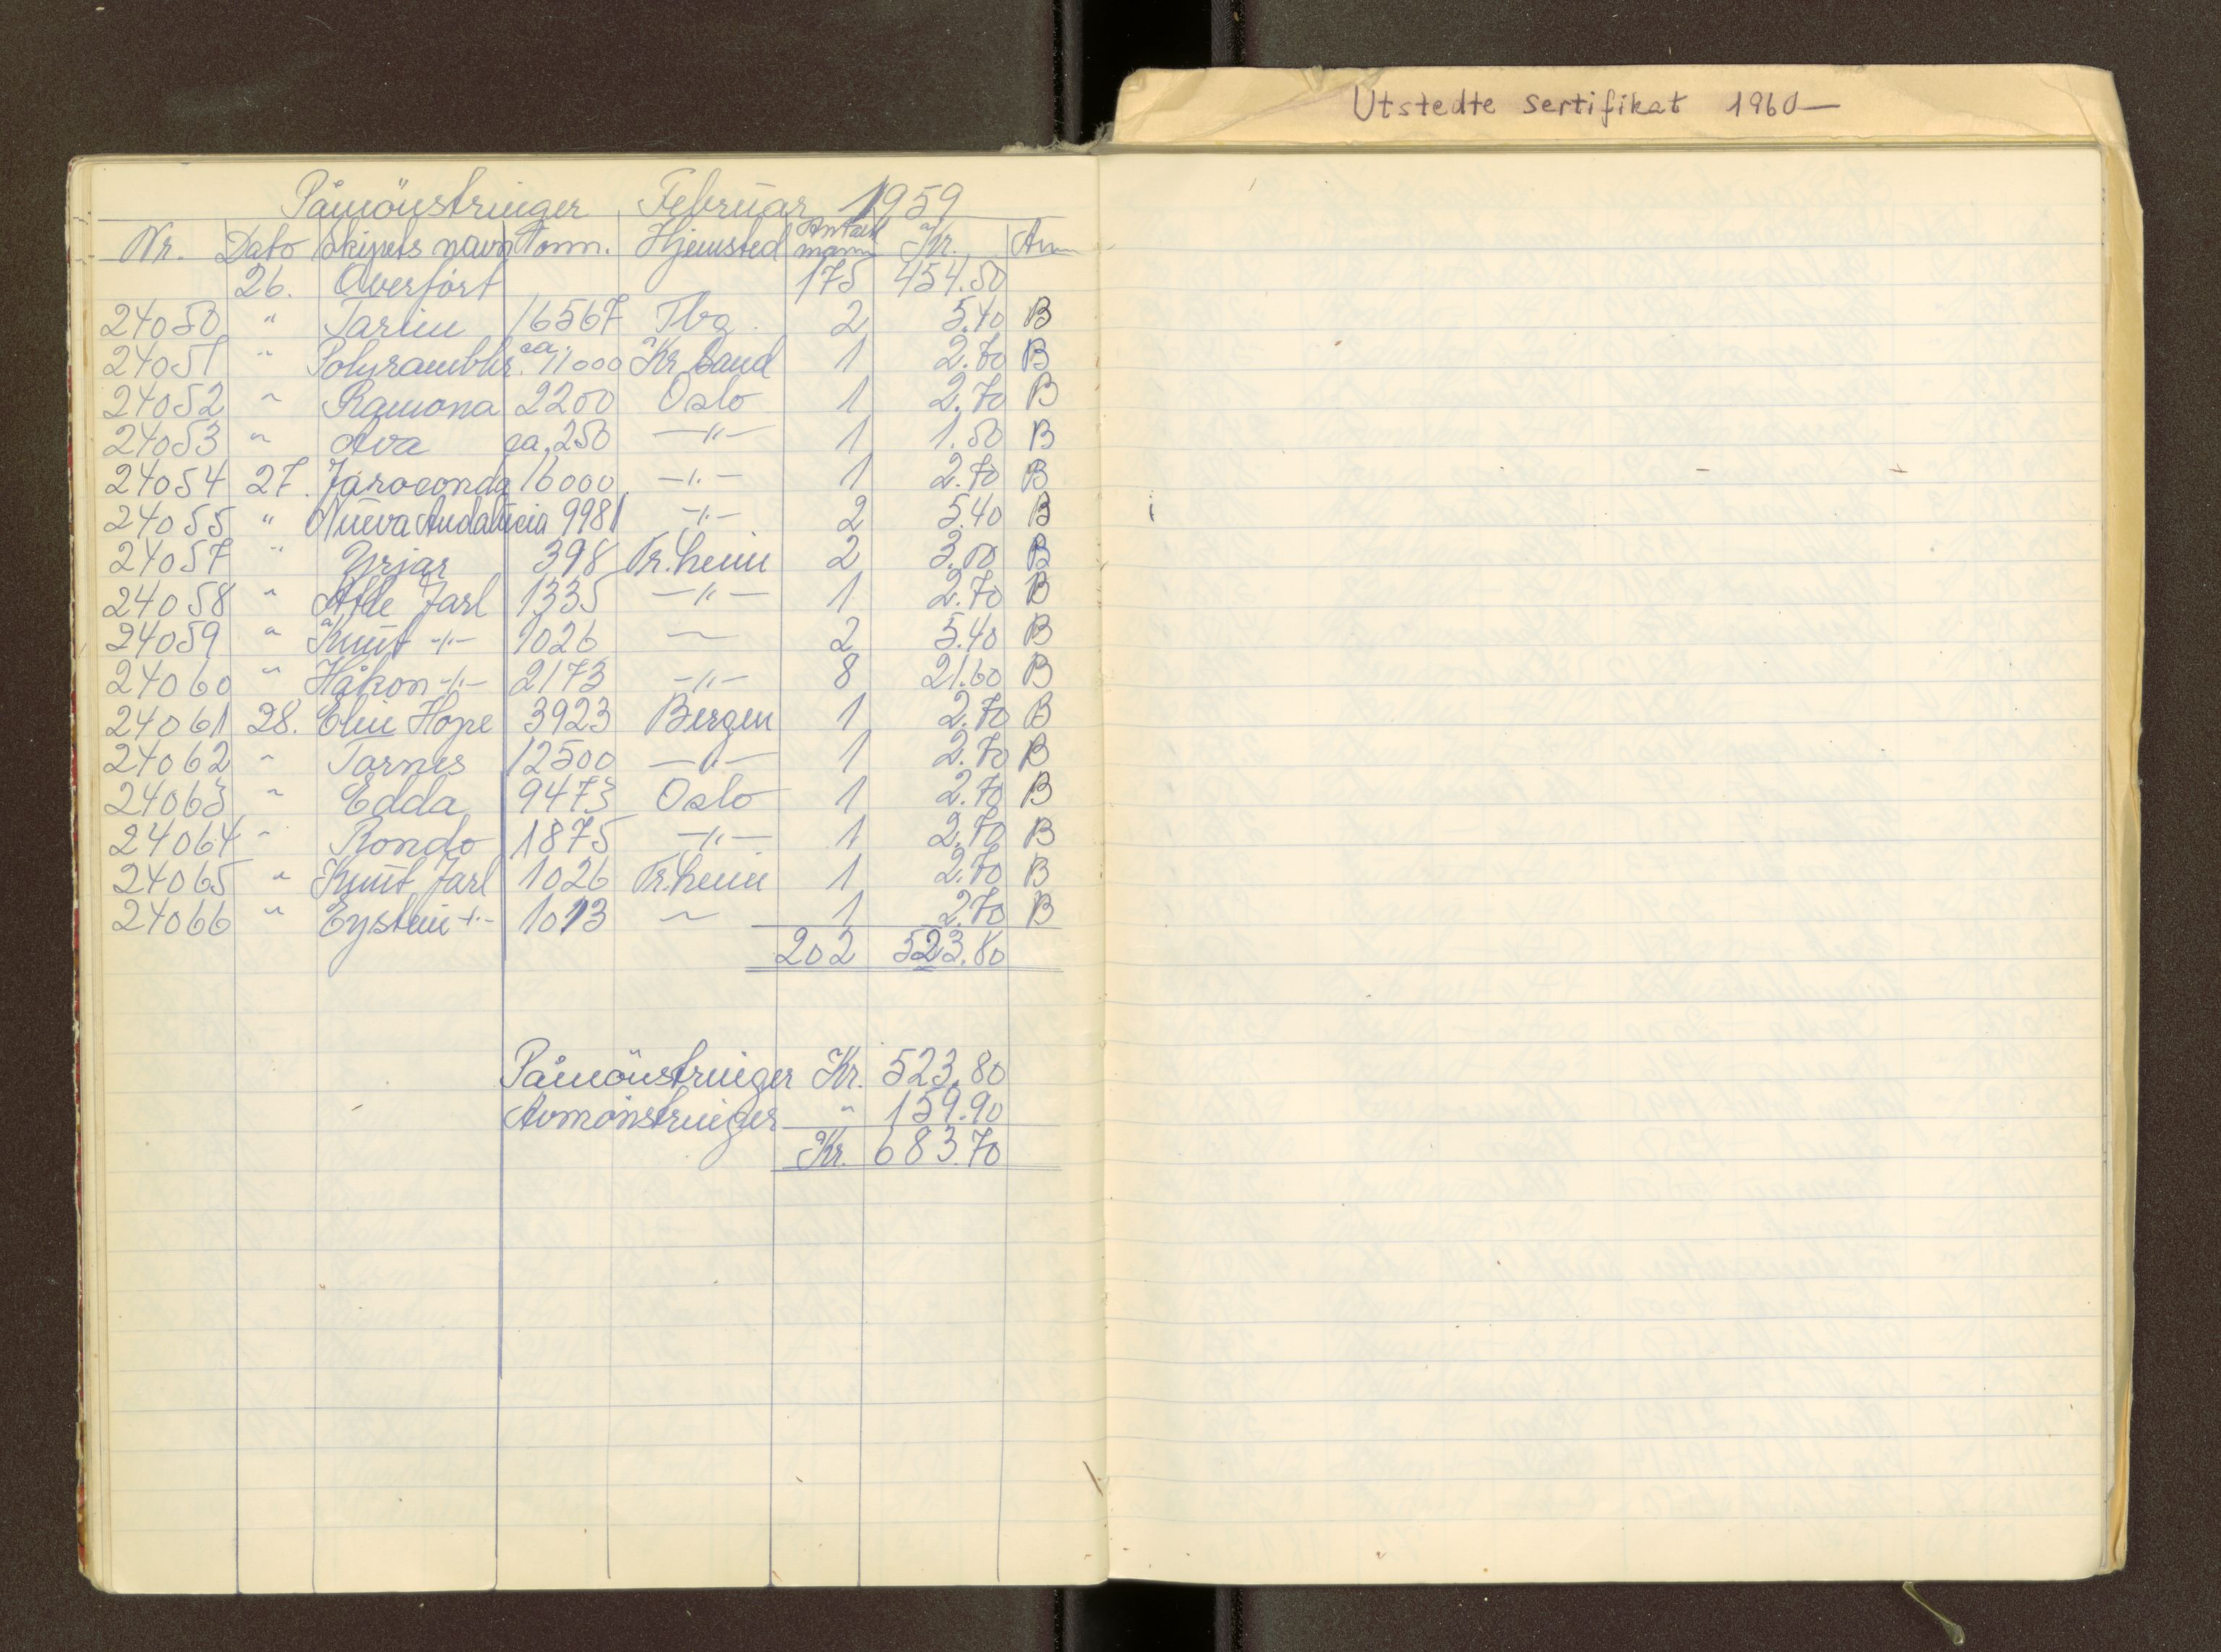 Utstedte Sertifikat 1960—
Påmönstringer Februar 1959
Nr. Dato Skipets navn Tonn. Hjemsted Antall mann Kr. Anm
26. Overfört 175 454.50
24050 " Tarim 16567 Tbg. 2 5.40 B
24051 " ca. 11000 Kr.sand 1 2.70 B
24052 " Ramona 2200 Oslo 1 2.70 B
24053 " Ava ca. 250 —"— 1 1.50 B
24054 27. Jaroconda 16000 —"— 1 2.70 B
24055 " Nueva Andalucia 9981 —"— 2 5.40 B
24057 " Yrjar 398 Tr.heim 2 3.00 B
24058 " Atle Jarl 1335 —"— 1 2.70 B
24059 " Knut —"— 1026 — 2 5.40 B
24060 " Håkon —"— 2173 —"— 8 21.60 B
24061 28. Elin Hope 3923 Bergen 1 2.70 B
24062 " Tornes 12500 —"— 1 2.70 B
24063 " Edda 9473 Oslo 1 2.70 B
24064 " Rondo 1875 —"— 1 2.70 B
24065 " Knut Jarl 1026 Tr.heim 1 2.70 B
24066 " Eystein —"— 1013 — 1 2.70 B
202 523.80
Påmönstringer Kr. 523.80
Avmönstringer " 159.90
Kr. 683.70